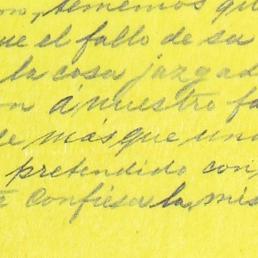 tememos qu
ue el fallo de su
la cosa jazgad
on á nuestro fa
de más que una
pretendido con,
te confiesa la mis